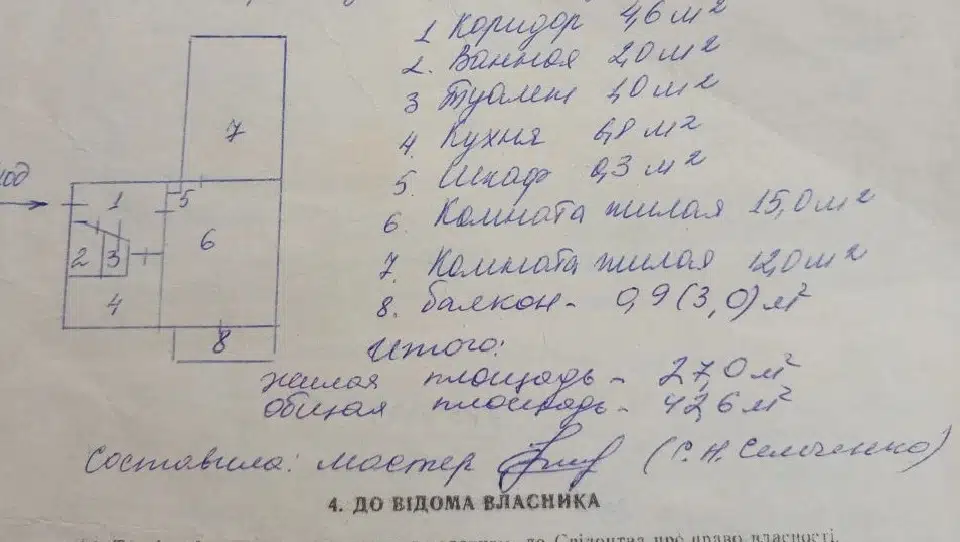 1 Коридор 4,6 м²
2. Ванная 2,0 м²
3 Туалет 1,0 м²
4. Кухня 6,8 м²
5. Шкаф 0,3 м²
6. Комната жилая 15,0 м²
7. Комната жилая 12,0 м²
8. балкон - 0,9 (3,0) м²
Итого:
жилая площадь - 27,0 м²
общая площадь - 42,6 м²
Составила: мастер (С.Н. Семченко)
4. ДО ВІДОМА ВЛАСНИКА
до Свідоцтва про право власності.
7
1
5
6
2
3
4
8